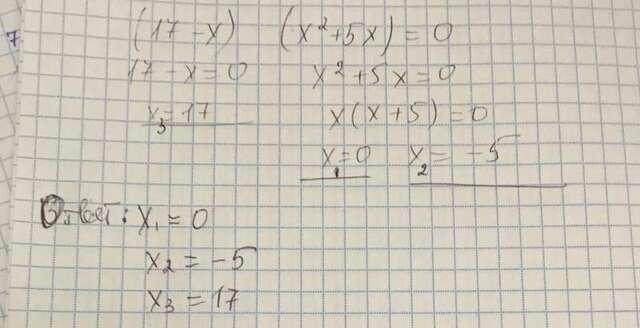 7. (17 - x) (x² + 5x) = 0
17 - x = 0 x² + 5x = 0
x₃ = 17 x(x + 5) = 0
x₁ = 0 x₂ = -5
Ответ: x₁ = 0
x₂ = -5
x₃ = 17